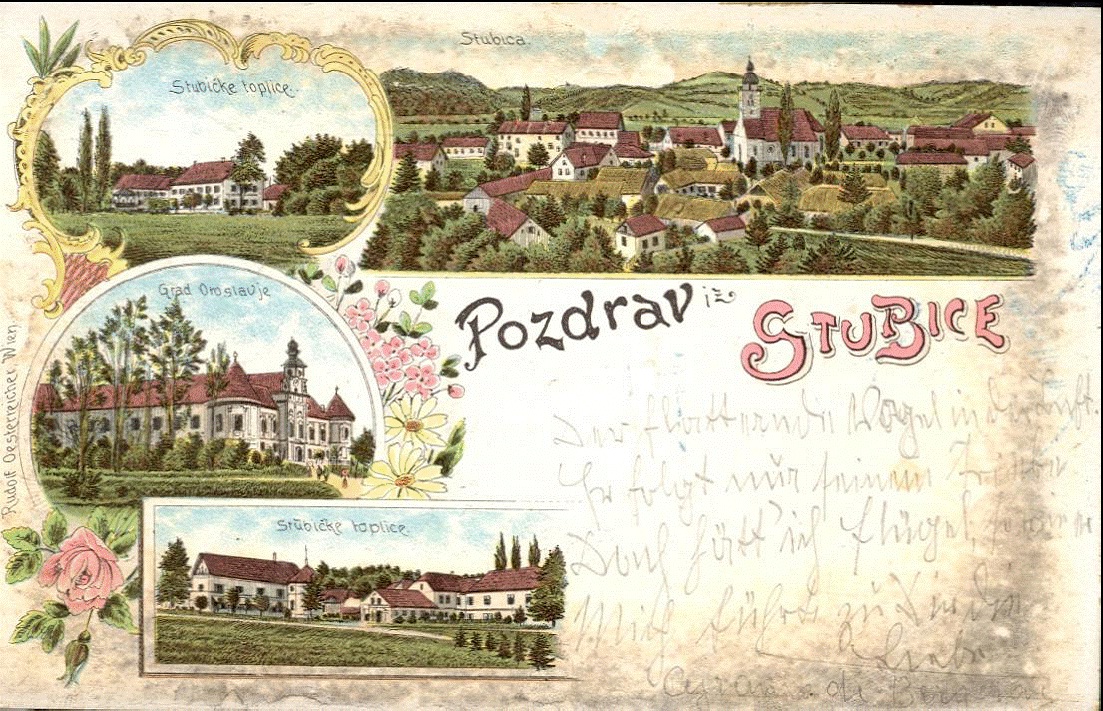 Stubica.
Stubičke toplice.
Grad Oroslavje
Pozdrav iz STUBICE
Stubičke toplice.
Rudolf Oesterreicher, Wien.
Der flatternde Vogel in der Luft.
Er folgt nur seinem Triebe
Doch hätt ich Flügel,
Mich führt zu
Liebe
de